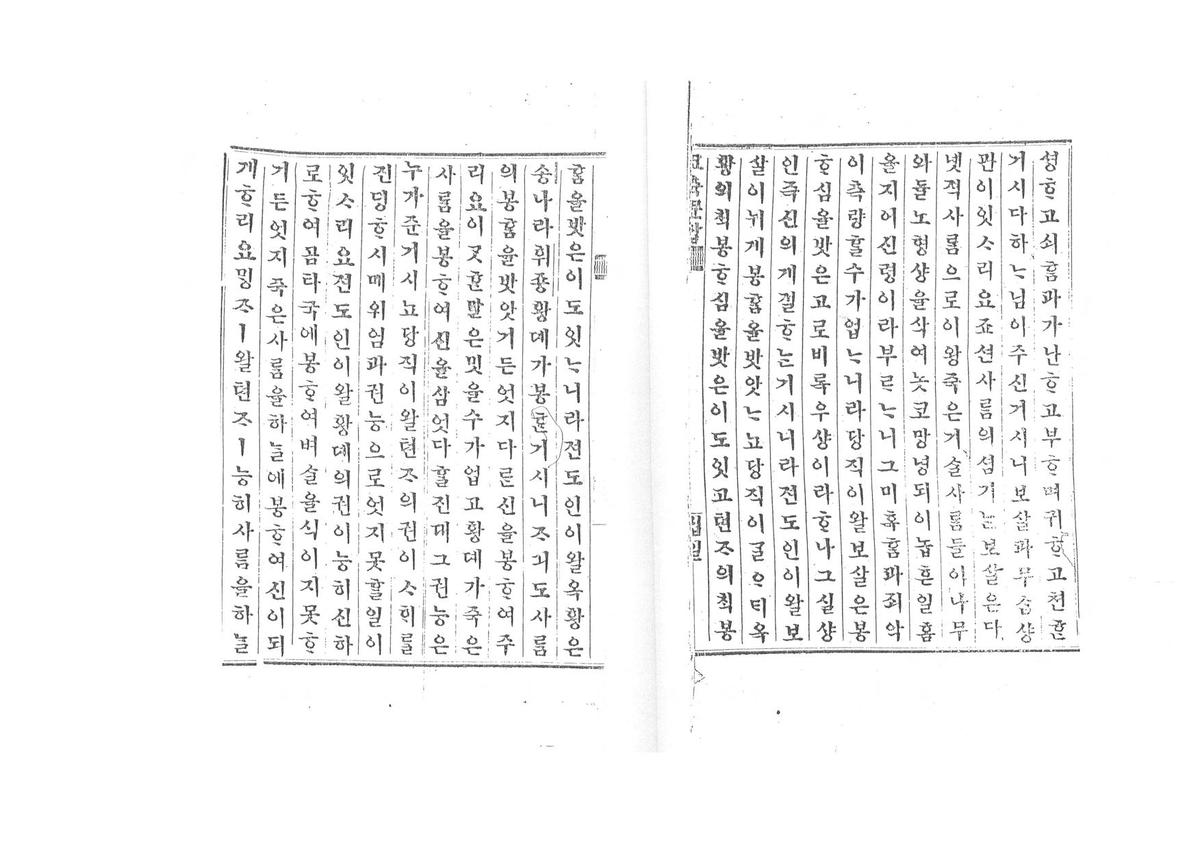 셩ᄒᆞ고쇠ᄒᆞᆷ과가난ᄒᆞ고부ᄒᆞ며귀ᄒᆞ고쳔ᄒᆞᆫ
거시다하ᄂᆞ님이주신거시니보살과무ᄉᆞᆷ샹
관이잇ᄉᆞ리요죠션사ᄅᆞᆷ의셤기ᄂᆞᆫ보살은다
녯젹사ᄅᆞᆷ으로이왕죽은거슬사ᄅᆞᆷ들이나무
와돌노형샹을삭여놋코망녕되이놉흔일홈
을지어신령이라부르ᄂᆞ니그미혹ᄒᆞᆷ과죄악
이측량ᄒᆞᆯ수가업ᄂᆞ니라당직이왈보살은봉
ᄒᆞ심을밧은고로비록우샹이라ᄒᆞ나그실샹
인즉신의게졀ᄒᆞᄂᆞᆫ거시니라젼도인이왈보
살이뉘게봉ᄒᆞᆷ을밧앗ᄂᆞ뇨당직이ᄀᆞᆯᄋᆞᄃᆡ옥
황의칙봉ᄒᆞ심을밧은이도잇고텬ᄌᆞ의칙봉
십일
ᄒᆞᆷ을밧은이도잇ᄂᆞ니라젼도인이왈옥황은
송나라휘죵황뎨가봉ᄒᆞᆫ거시니ᄌᆞ긔도사ᄅᆞᆷ
의봉ᄒᆞᆷ을밧앗거든엇지다른신을봉ᄒᆞ여주
리요이ᄀᆞᆺᄒᆞᆫ말은밋을수가업고황뎨가죽은
사ᄅᆞᆷ을봉ᄒᆞ여신을삼엇다ᄒᆞᆯ진대그권능은
누가준거시뇨당직이왈텬ᄌᆞ의권이ᄉᆞᄒᆡ를
진뎡ᄒᆞ시매위임과권능으로엇지못ᄒᆞᆯ일이
잇ᄉᆞ리요젼도인이왈황뎨의권이능히신하
로ᄒᆞ여곰타국에봉ᄒᆞ여벼슬을식이지못ᄒᆞ
거든엇지죽은사ᄅᆞᆷ을하ᄂᆞᆯ에봉ᄒᆞ여신이되
게ᄒᆞ리요ᄆᆡᆼᄌᆞㅣ왈텬ᄌᆞㅣ능히사ᄅᆞᆷ을하ᄂᆞᆯ